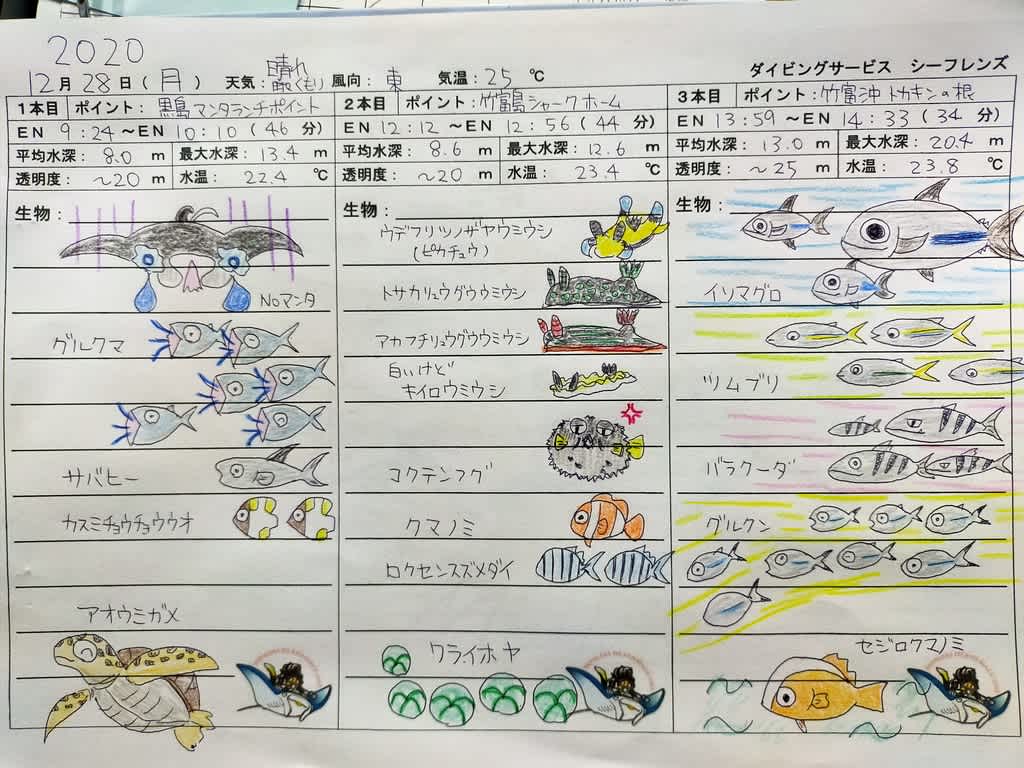 2020
12月28日(月) 天気:晴れ くもり 風向:東 気温:25℃
ダイビングサービス シーフレンズ
1本目 ポイント:黒島マンタランチポイント
EN 9:24～EN 10:10(46分)
平均水深: 8.0 m 最大水深: 13.4 m
透明度: ～20 m 水温: 22.4 ℃
生物:
Noマンタ
グルクマ
サバヒー
カスミチョウチョウウオ
アオウミガメ
2本目 ポイント:竹富島シャークホーム
EN 12:12～EN 12:56(44分)
平均水深: 8.6 m 最大水深: 12.6 m
透明度: ～20 m 水温: 23.4 ℃
生物:
ウデフリツノザヤウミウシ
(ピカチュウ)
トサカリュウグウウミウシ
アカフチリュウグウウミウシ
白いけど
キイロウミウシ
コクテンフグ
クマノミ
ロクセンスズメダイ
ワライホヤ
3本目 ポイント:竹富沖トカキンの根
EN 13:59～EN 14:33(34分)
平均水深: 13.0 m 最大水深: 20.4 m
透明度: ～25 m 水温: 23.8 ℃
生物:
イソマグロ
ツムブリ
バラクーダ
グルクン
セジロクマノミ